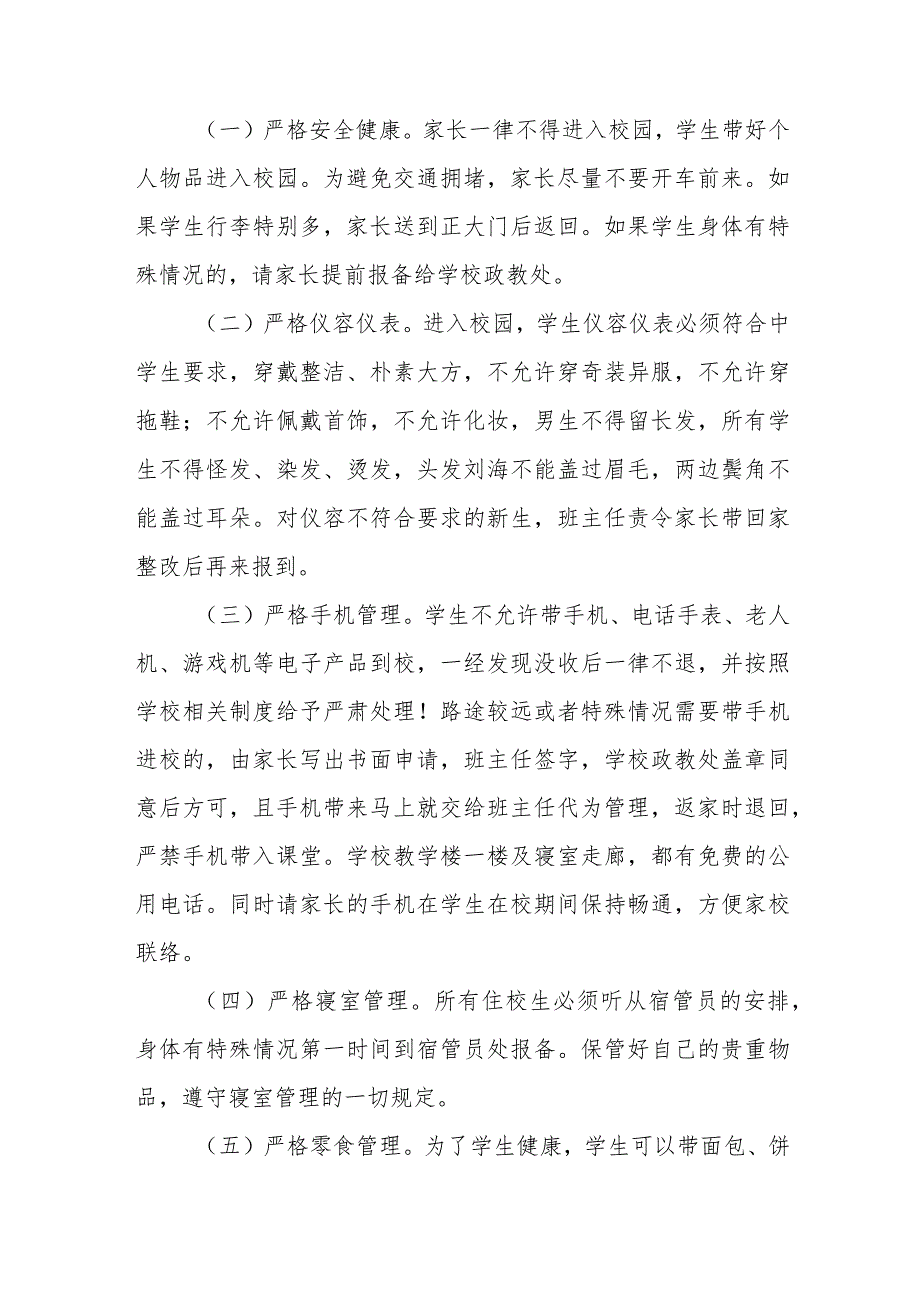 （一）严格安全健康。家长一律不得进入校园，学生带好个
人物品进入校园。为避免交通拥堵，家长尽量不要开车前来。如
果学生行李特别多，家长送到正大门后返回。如果学生身体有特
殊情况的，请家长提前报备给学校政教处。
（二）严格仪容仪表。进入校园，学生仪容仪表必须符合中
学生要求，穿戴整洁、朴素大方，不允许穿奇装异服，不允许穿
拖鞋；不允许佩戴首饰，不允许化妆，男生不得留长发，所有学
生不得怪发、染发、烫发，头发刘海不能盖过眉毛，两边鬓角不
能盖过耳朵。对仪容不符合要求的新生，班主任责令家长带回家
整改后再来报到。
（三）严格手机管理。学生不允许带手机、电话手表、老人
机、游戏机等电子产品到校，一经发现没收后一律不退，并按照
学校相关制度给予严肃处理！路途较远或者特殊情况需要带手机
进校的，由家长写出书面申请，班主任签字，学校政教处盖章同
意后方可，且手机带来马上就交给班主任代为管理，返家时退回，
严禁手机带入课堂。学校教学楼一楼及寝室走廊，都有免费的公
用电话。同时请家长的手机在学生在校期间保持畅通，方便家校
联络。
（四）严格寝室管理。所有住校生必须听从宿管员的安排，
身体有特殊情况第一时间到宿管员处报备。保管好自己的贵重物
品，遵守寝室管理的一切规定。
（五）严格零食管理。为了学生健康，学生可以带面包、饼